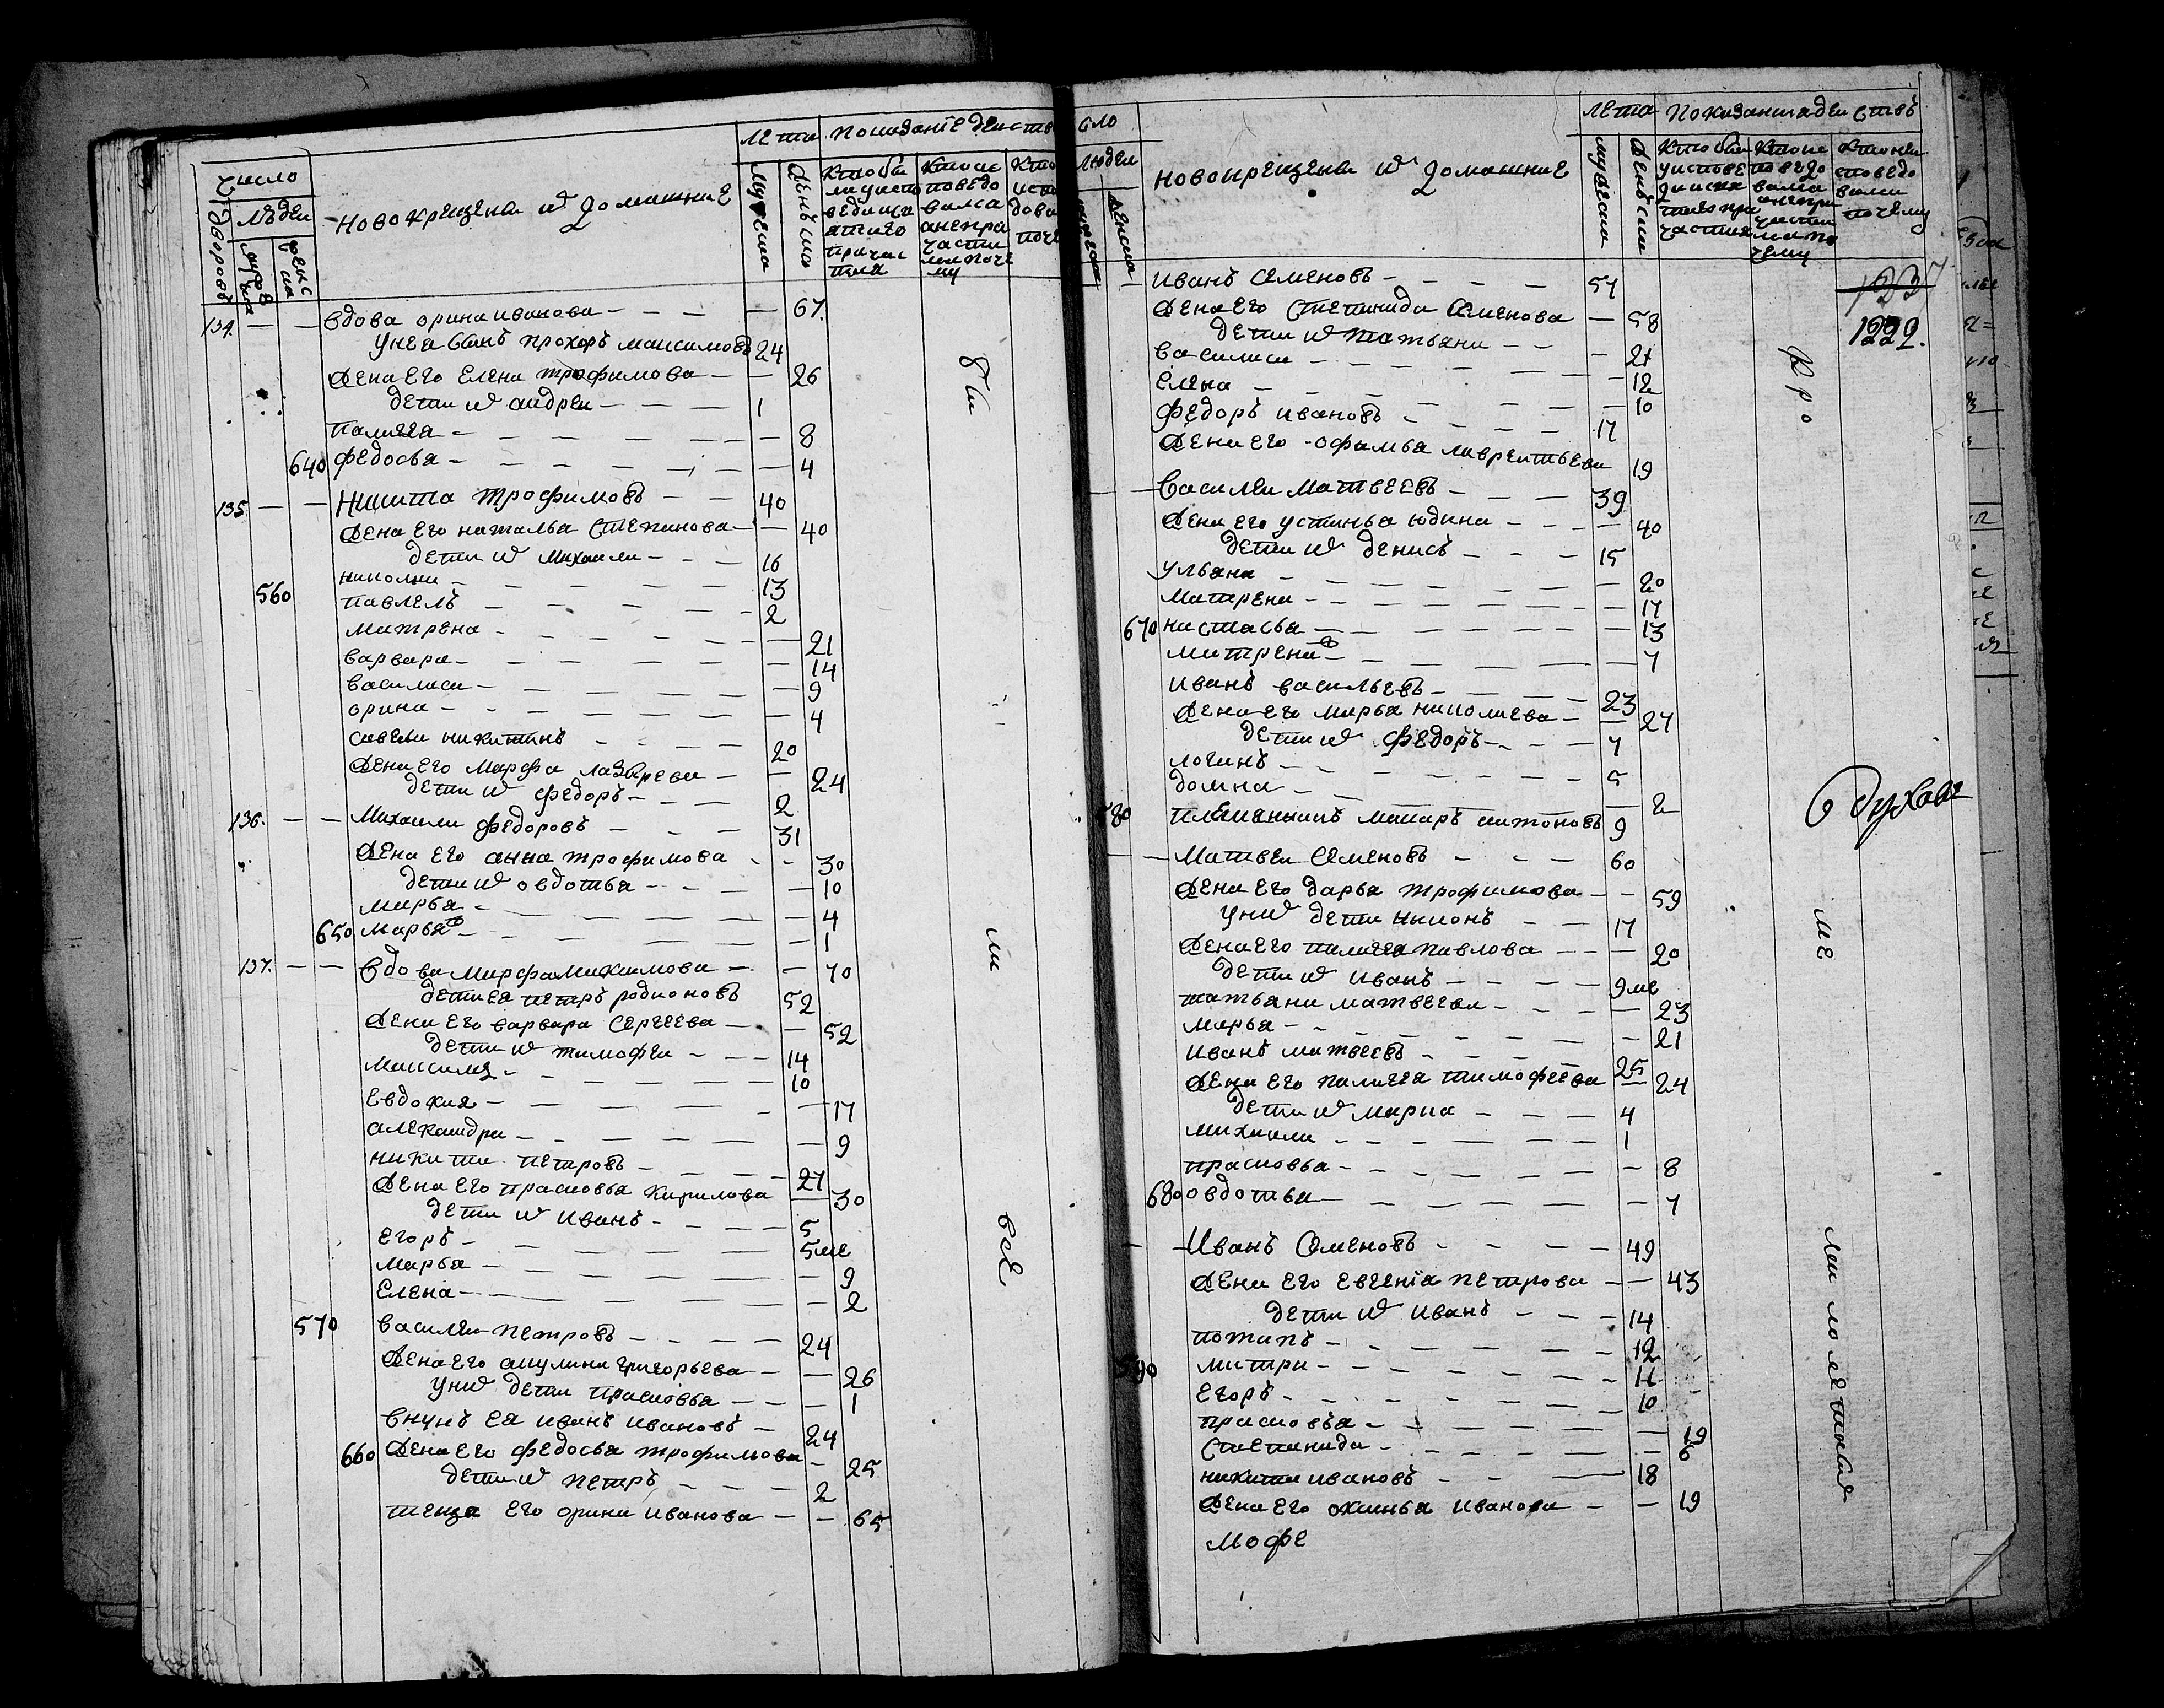 число
дворовъ
людеи
мужеска
женска
новокрещены и домашние
лета
мужеска
женска
показание деиств
кто был у исповеди и святого причастия
кто исповедовался а не причастился и почему
134. — — вдова орина иванова — — — — 67.
у нея сынъ прохоръ максимовъ 24
жена его елена трофимова — — 26
дети их андреи — — — 1
палагея — — — — — 8
640 федосья — — — — — 4
135. — — никита трофимовъ — — 40
жена его наталья степанова — — 40
дети их михаило — — — 16
николаи — — — — 13
560 павелъ — — — — 2
матрена — — — — — 21
варвара — — — — — 14
василиса — — — — — 9
орина — — — — — 4
савели никитинъ — — — — 20
жена его марфа лазарева — — 24
дети их федоръ — — — 2
136. — — михаило федоровъ — — — 31
жена его анна трофимова — — 30
дети их овдотья — — — — 10
марья — — — — — 4
650 марья — — — — — 1
137. — — вдова марфа максимова — — 70
дети ея петръ родионовъ 52
жена его варвара сергеева — — 52
дети их тимофеи — — — 14
максимъ — — — — — 10
евдокия — — — — — 17
александра — — — — — 9
никита петровъ — — — — 27
жена его прасковья кирилова — 30
дети их иванъ — — — — 5
егоръ — — — — — 5 ме
марья — — — — — 9
елена — — — — — 2
570 василеи петровъ — — — — 24
жена его акулина григорьева — — 26
у них дети прасковья — — — 1
внукъ ея иванъ ивановъ — 24
660 жена его федосья трофимова — 25
дети их петръ — — — 2
теща его орина иванова — — 65
бы
ли
все
сло
людеи
женска
новокрещены и домашние
лета
мужеска
женска
показания деиствъ
кто были у исповеди и святаго причастия
кто исповедовался а не причастился и почему
кто не исповедовался и почему
1229.
иванъ семеновъ — — — — 57
жена его степанида семенова — 58
дети их татьяна — — — 21
василиса — — — — — 12
елена — — — — — 10
федоръ ивановъ — — — — 17
жена его офимья лаврентьева 19
— — василеи матвеевъ — — — 39
жена его устинья юдина — — — 40
дети их денисъ — — — 15
ульяна — — — — — 20
матрена — — — — — 17
670 настасья — — — — — 13
матрена — — — — — 7
иванъ васильевъ — — — — 23
жена его марья николаева — — 27
дети их федоръ — — — 7
логинъ — — — — — 5
домна — — — — — 2
580 племянникъ макаръ антоновъ 9
— — матвеи семеновъ — — — 60
жена его дарья трофимова — — 59
у них дети никонъ — — 17
жена его палагея павлова — — — 20
дети их иванъ — — — — 9 ме
татьяна матвеева — — — — 23
марья — — — — — 21
иванъ матвеевъ — — — — 25
жена его палагея тимофеева — 24
дети их марка — — — 4
михаило — — — — — 1
прасковья — — — — — 8
680 овдотья — — — — — 7
— — иванъ семеновъ — — — — 49
жена его евгенiа петрова — — 43
дети их иванъ — — — 14
потапъ — — — — — 12
590 митри — — — — — 11
егоръ — — — — — 10
прасковья — — — — — 19
степанида — — — — — 6
никита ивановъ — — — 18
жена его оксинья иванова — — 19
мофе
кро
ме
малолетных
О духов